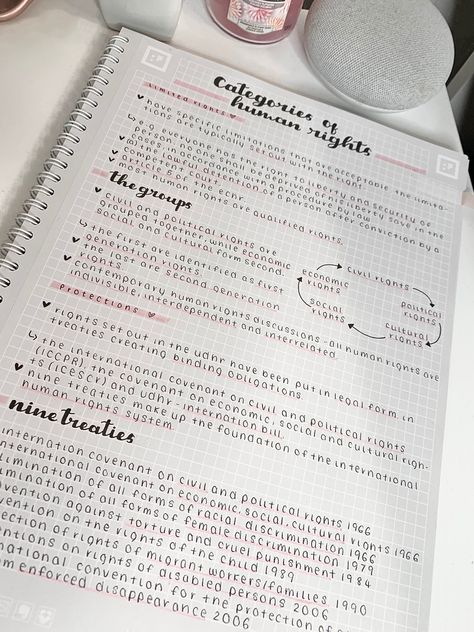 Categories of
human rights
limited rights ♡
♥ have specific limitations that are acceptable. the limita-
tions are typically set out with the right.
↳ e.g. everyone has the right to liberty and security of
person. no one shall be deprived of his liberty save in the
cases in accordance with a procedure by law.
♥ the lawful detention of a person after conviction by a
competent court.
♥ article 5 of the echr.
♥ most human rights are qualified rights.
the groups
♥ civil and political rights are
grouped together, while economic
social and cultural form second.
↳ the first are identified as first
♥ generation rights.
the last are second generation
rights.
♥ contemporary human rights discussions - all human rights are
indivisible, interdependent and interrelated.
civil rights
political
rights
cultural
rights
social
rights
economic
rights
protections ♡
♥ rights set out in the udhr have been put in legal form in
treaties creating binding obligations.
↳ the international covenant on civil and political rights
(ICCPR), the covenant on economic, social and cultural righ-
ts (ICESCR) and UDHR - internation bill.
♥ nine treaties make up the foundation of the international
human rights system
nine treaties
internation covenant on civil and political rights 1966
international covenant on economic, social, cultural rights 1966
elimination of all forms of racial discrimination 1966
elimination of all forms of female discrimination 1979
convention against torture and cruel punishment 1984
convention on the rights of the child 1989
protection of rights of migrant workers/families 1990
conventions on rights of disabled persons 2006
international convention for the protection of
from enforced disappearance 2006